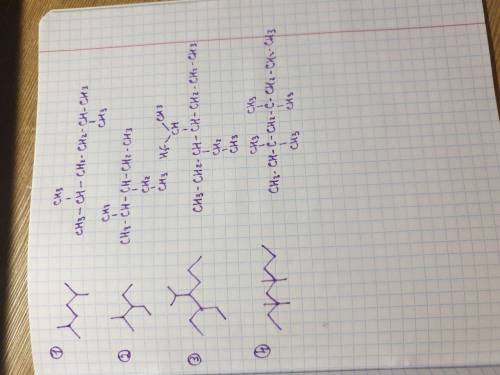 ①
CH3
CH3-CH-CH2-CH2-CH-CH3
CH3
②
CH3
CH3-CH-CH-CH2-CH3
CH2
CH3
③
CH3
CH
CH3-CH2-CH-CH-CH2-CH2-CH3
CH2
CH3
④
CH3 CH3
CH3-CH-C-CH2-C-CH2-CH2-CH3
CH3 CH3